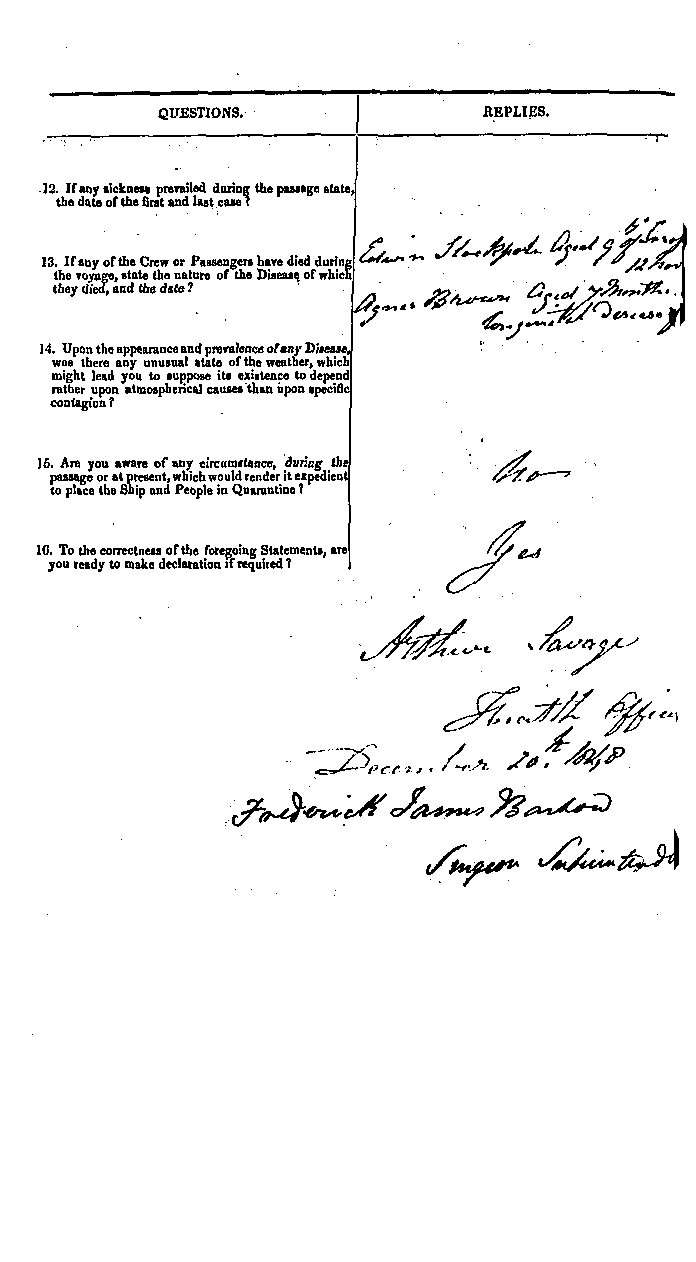 QUESTIONS. REPLIES.
12. If any sickness prevailed during the passage state,
the date of the first and last case?
13. If any of the Crew or Passengers have died during
the voyage, state the nature of the Disease of which
they died, and the date?
Edwin Stockpole Aged 9
12 Nov
Agnes Brown Aged 7 Months
Congenital Disease
14. Upon the appearance and prevalence of any Disease,
was there any unusual state of the weather, which
might lead you to suppose its existence to depend
rather upon atmospherical causes than upon specific
contagion?
15. Are you aware of any circumstance, during the
passage or at present, which would render it expedient
to place the Ship and People in Quarantine?
No
16. To the correctness of the foregoing Statements, are
you ready to make declaration if required?
Yes
Arthur Savage
Health Officer
December 20th 1848
Frederick James Barlow
Surgeon Superintend